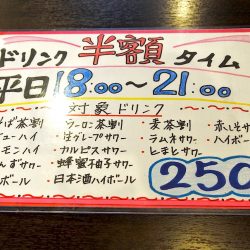 ドリンク 半額 タイム
平日 18:00～21:00
対象ドリンク
そば茶割 ・ウーロン茶割 ・麦茶割 ・赤しそサワ
ューハイ ・生グレープサワー ・ラムネサワー ・ハイボー
モンハイ ・カルピスサワー ・とまとサワー
んずサワー ・蜂蜜柚子サワー
ボール ・日本酒ハイボール
250